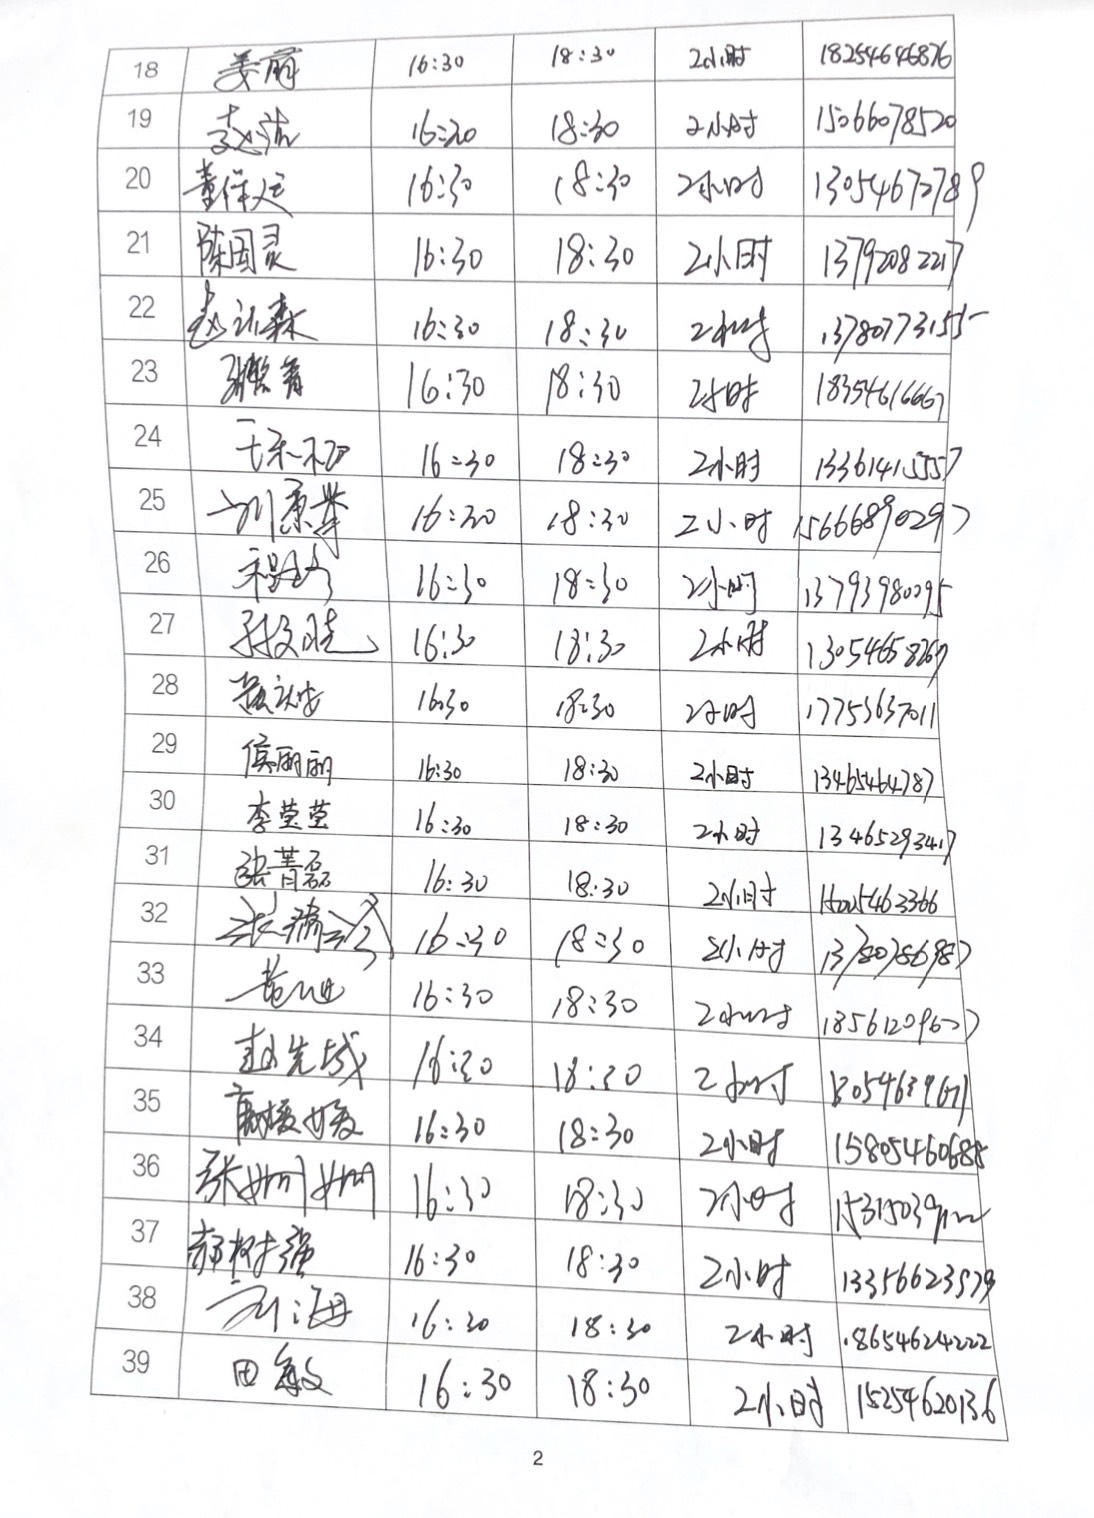 18 姜丽 16:30 18:30 2小时 18254646876
19 赵 16:30 18:30 2小时 15066078520
20 董 16:30 18:30 2小时 13054672789
21 陈国灵 16:30 18:30 2小时 13792082217
22 赵 森 16:30 18:30 2小时 13780773155
23 16:30 18:30 2小时 18354616667
24 16:30 18:30 2小时 13361415557
25 刘 16:30 18:30 2小时 15666890297
26 程 16:30 18:30 2小时 13793980095
27 张文 16:30 18:30 2小时 13054658267
28 16:30 18:30 2小时 17753637011
29 侯丽丽 16:30 18:30 2小时 13465464787
30 李莹莹 16:30 18:30 2小时 13465293417
31 张菁磊 16:30 18:30 2小时
32 张 16:30 18:30 2小时
33 黄 16:30 18:30 2小时
34 赵先 16:30 18:30 2小时
35 媛 16:30 18:30 2小时 15805460688
36 张姗姗 16:30 18:30 2小时
37 郝树强 16:30 18:30 2小时 13356623579
38 刘海 16:30 18:30 2小时 18654624222
39 田敏 16:30 18:30 2小时 15254620136
2